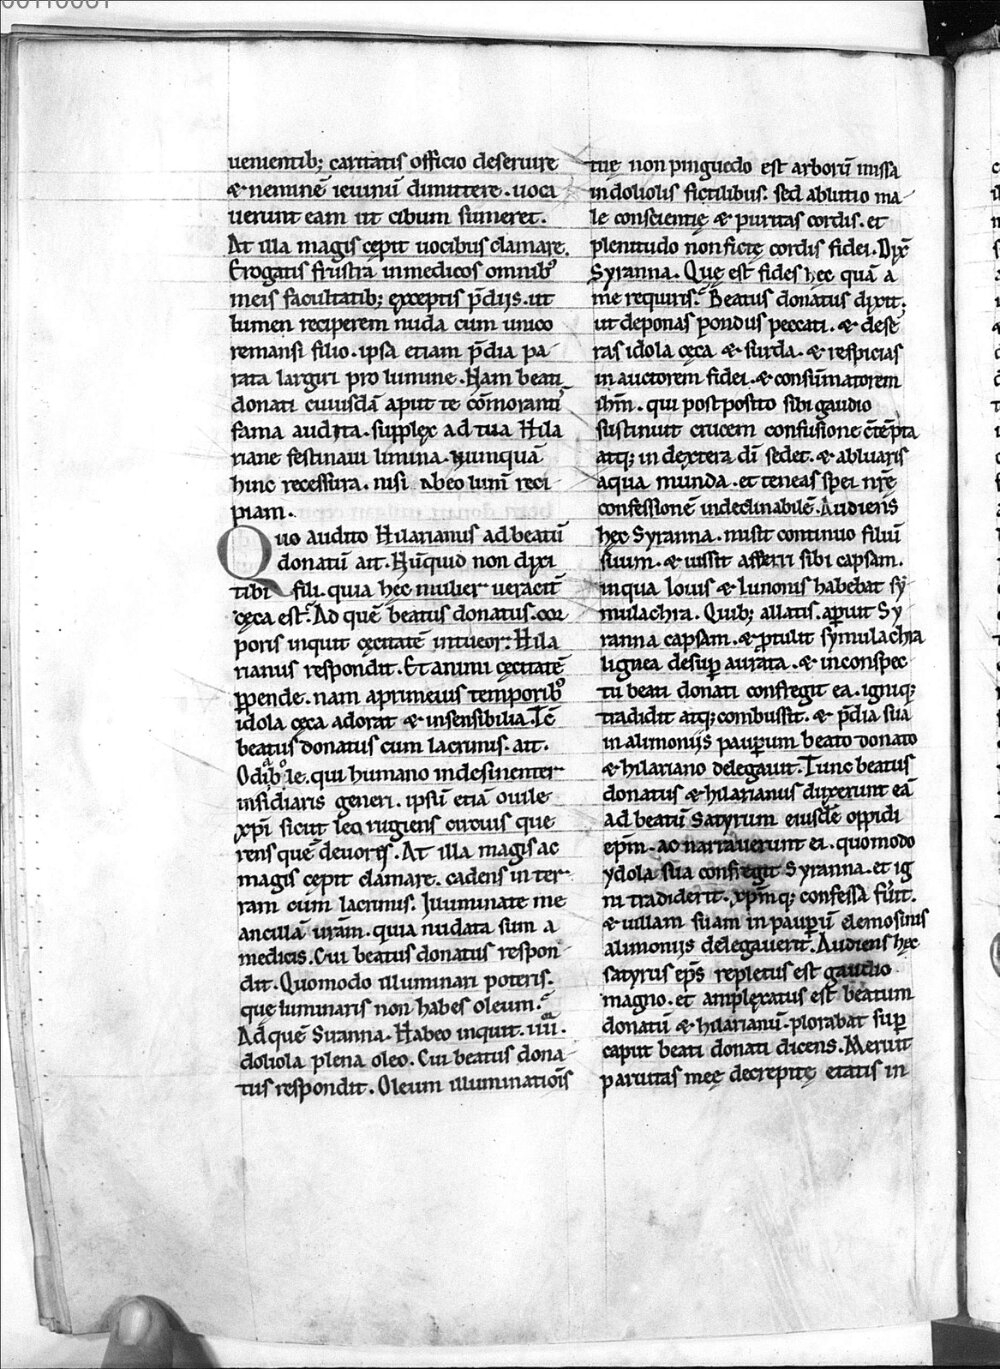 uenientib; caritatis officio deseruire
& neminē ieiunū dimittere. uoca
uerunt eam ut cibum sumeret.
At illa magis cępit uocibus clamare.
Erogatis frustra inmedicos omnibꝰ
meis facultatib; exceptis p̄diis. ut
lumen reciperem nuda cum unico
remansi filio. ipsa etiam p̄dia pa
rata largiri pro lumine. Nam beati
donati cuiusdā aput te cōmoranti
fama audita. supplex ad tua Hila
riane festinaui limina. nunquā
hinc recessura. nisi abeo lum̄ reci
piam.
Quo audito Hilarianus ad beatū
donatū ait. Nūquid non dixi
tibi fili. quia hec mulier ueracit̄
cęca est? Ad quē beatus donatus. cor
poris inquit cęcitatē intueor. Hila
rianus respondit. Et animi cęcitatē
ꝑpende. nam aprimeuis temporibꝰ
idola cęca adorat & insensibilia. Tc̄
beatus donatus cum lacrimis. ait.
O diabole. qui humano indesinenter
insidiaris generi. ipsū etiā ouile
xp̄i sicut leo rugiens circuis que
rens quē deuores. At illa magis ac
magis cepit clamare. cadens in ter
ram cum lacrimis. Illuminate me
ancillā urām. quia nudata sum a
medicis. Cui beatus donatus respon
dit. Quomodo illuminari poteris.
que luminaris non habes oleum?
Ad quē Siranna. Habeo inquit. iiii.
doliola plena oleo. Cui beatus dona
tus respondit. Oleum illuminatiōis
tuę non pinguedo est arborū missa
indoliolis fictilibus. sed ablutio ma
le conscientię & puritas cordis. et
plenitudo non fictę cordis fidei. Dix̄
Syranna. Quę est fides hec quā a
me requiris? Beatus donatus dixit.
ut deponas pondus peccati. & dese
ras idola cęca & surda. & respicias
in auctorem fidei. & consūmatorem
ihm̄. qui postposito sibi gaudio
sustinuit crucem confusione c̄tēpta
atq; in dextera dī sedet. & abluaris
aqua munda. et teneas spei nr̄ę
confessionē indeclinabilē. Audiens
hęc Syranna. misit continuo filiū
suum. & iussit afferri sibi capsam.
inqua Iouis & Iunonis habebat sy
mulachra. Quib; allatis. aperuit Sy
ranna capsam. & ꝓtulit symulachra
lignea desuꝑ aurata. & inconspec
tu beati donati confregit ea. igniq;
tradidit atq; combussit. & p̄dia sua
in alimoniis pauꝑum beato donato
& hilariano delegauit. Tunc beatus
donatus & hilarianus duxerunt eā
ad beatū Satyrum eiusdē oppidi
ep̄m. ac narrauerunt ei. quomodo
ydola sua confregit Syranna. et ig
ni tradiderit. xp̄mq; confessa fuit.
& uillam suam in pauꝑū elemosinis
alimoniis delegauerit. Audiens hęc
satyrus ep̄s repletus est gaudio
magno. et amplexatus est beatum
donatū & hilarianū. plorabat suꝑ
caput beati donati dicens. Meruit
paruitas meę decrepitę etatis in